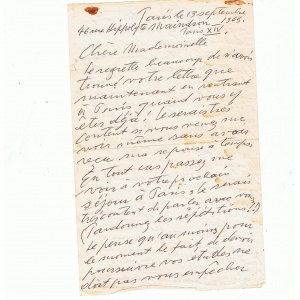 Paris le 13 septembre
46 rue Hippolyte Maindron 1965.
Paris XIV
Chère Mademoiselle
Je regrette beaucoup de n'avoir
trouvé votre lettre que
maintenant en rentrant
à Paris quand vous y
êtes déjà! Je serais très
content si vous venez me
voir même sans avoir
reçu ma reponse à temps.
En tout cas passez me
voir à votre prochain
séjour à Paris, je serais
très content de parler avec vous
(Pardonnez les répétitions!!)
Je pense qu'au moins pour
le moment le fait de devoir
poursuivre vos études ne
doit pas vous empêcher